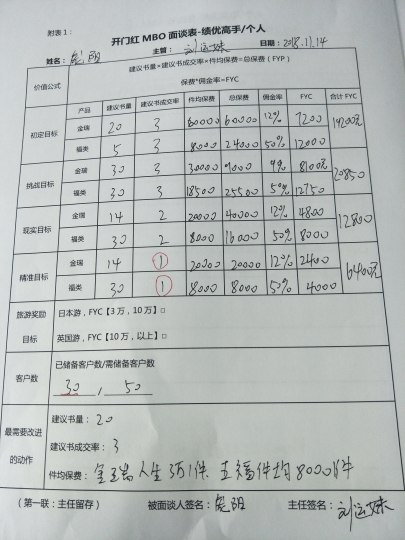 附表1：
开门红MBO面谈表-绩优高手/个人
姓名： 主管：刘运妹 日期：2018.11.14
价值公式 建议书量*建议书成交率*件均保费=总保费（FYP）
保费*佣金率=FYC
产品 建议书量 建议书成交率 件均保费 总保费 佣金率 FYC 合计FYC
初定目标 金瑞 20 3 60000 12% 7200 19200元
福类 5 3 8000 24000 50% 12000
挑战目标 金瑞 30 3 30000 9000 9% 8100元 20850
福类 30 3 8500 25500 50% 12750
现实目标 金瑞 14 2 20000 40000 12% 4800 12800
福类 30 2 8000 16000 50% 8000
精准目标 金瑞 14 1 20000 20000 12% 2400 6400元
福类 30 1 8000 8000 50% 4000
旅游奖励 日本游，FYC【3万，10万】□
目标 英国游，FYC【10万，以上】□
客户数 已储备客户数/需储备客户数
30 , 50
最需要改进的动作 建议书量：20
建议书成交率：3
件均保费：金瑞人生3万1件 五福件均8000件
（第一联：主任留存） 被面谈人签名： 主任签名：刘运妹